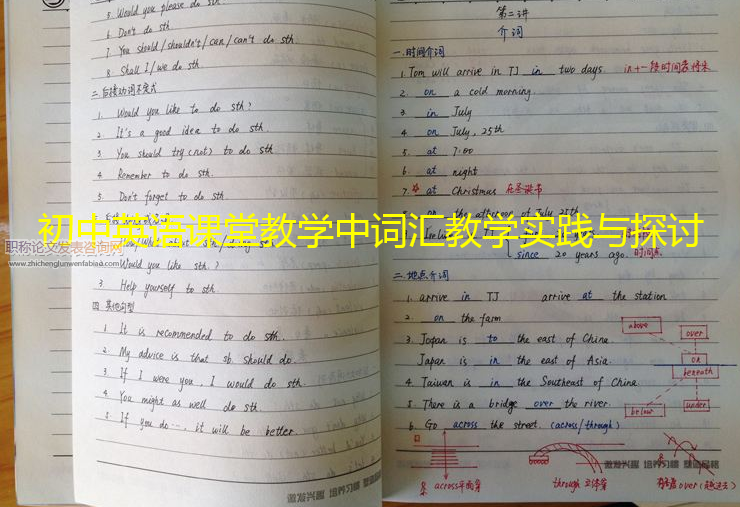 5. Would you please do sth.
6. Don't do sth
7. You should/shouldn't/can/can't do sth.
8. Shall I/we do sth.
二.后接动词不定式
1. Would you like to do sth?
2. It's a good idea to do sth.
3. You should try (not) to do sth
4. Remember to do sth.
5. Don't forget to do sth
初中英语课堂教学中词汇教学实践与探讨
职称论文发表咨询网
www.zhichenglunwenfabiao.com
Would you like sth.?
3. Help yourself to sth
四 其他句型
1. It is recommended to do sth.
2. My advice is that sb. should do.
3. If I were you, I would do sth.
4. You might as well do sth
5. If you do…, it will be better.
激发兴趣 培养习惯
第二讲
介词
一.时间介词
1. Tom will arrive in TJ in two days. in+一段时间表将来
2. on a cold morning.
3. in July
4. on July, 25th
5. at 7:00
6. at night
7. at Christmas 在圣诞节
on the afternoon of July 25th
since 20 years ago.
二.地点介词
1. arrive in TJ arrive at the station
2. on the farm
3. Japan is to the east of China
Japan is in the east of Asia.
4. Taiwan is in the Southeast of China.
5. There is a bridge over the river.
6. Go across the street. (across/through)
above
over
on
beneath
below
under
across平面穿
through 立体穿
over
激发兴趣 培养习惯